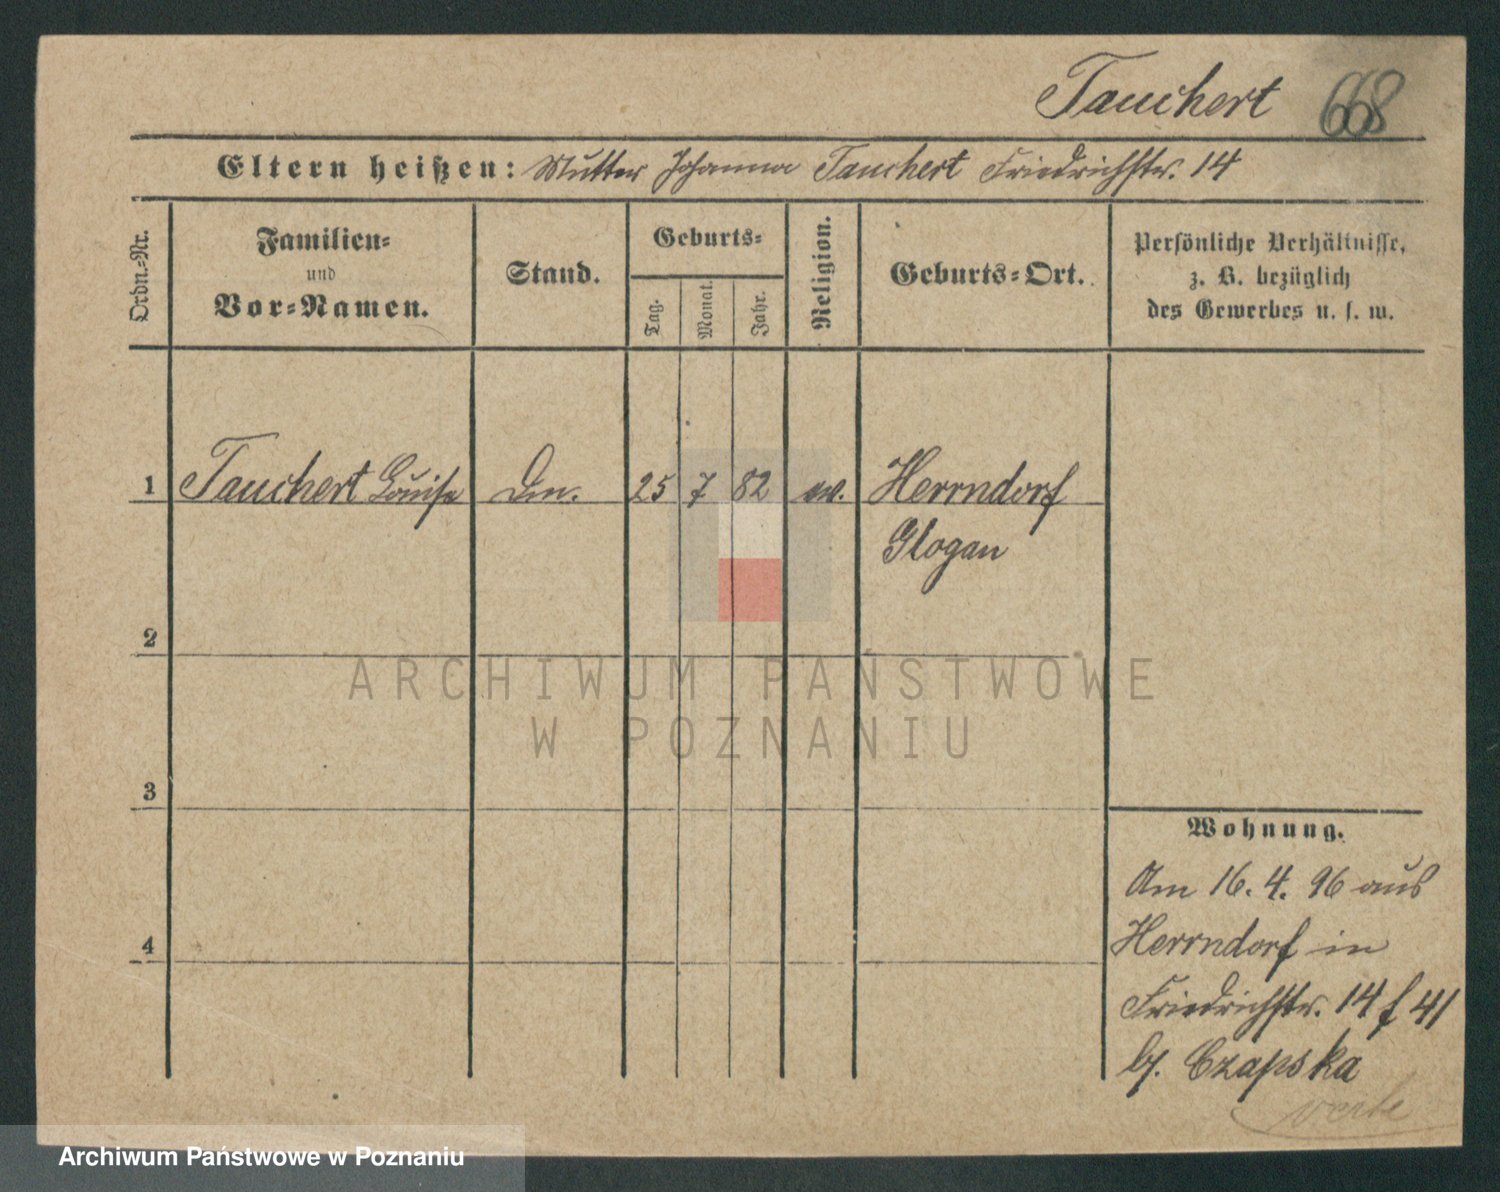 Tauchert 668
Eltern heißen: Mutter Johanna Tauchert Friedrichstr. 14
Ordn.-Nr.
Familien-
und
Vor-Namen.
Stand.
Geburts-
Tag.
Monat.
Jahr.
Religion.
Geburts-Ort.
Persönliche Verhältnisse,
z. B. bezüglich
des Gewerbes u. s. w.
1 Tauchert Louise 25 7 82 ev. Herrndorf
Glogau
2
3
4
Wohnung.
Am 16. 4. 96 aus
Herrndorf in
Friedrichstr. 14 f 41
b/. Czapska
ARCHIWUM PAŃSTWOWE
W POZNANIU
Archiwum Państwowe w Poznaniu